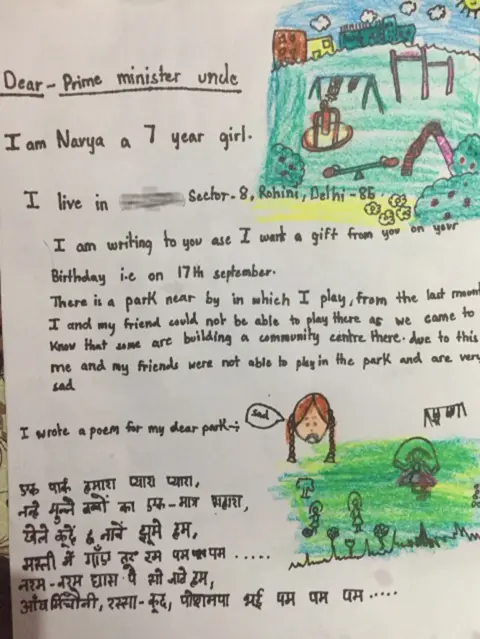 Dear - Prime minister uncle
I am Navya a 7 year girl.
I live in Sector-8, Rohini, Delhi-85.
I am writing to you ase I want a gift from you on your
Birthday i.e on 17th september.
There is a park near by in which I play, from the last mount
I and my friend could not be able to play there as we came to
Know that some are building a community centre there. due to this
me and my friends were not able to play in the park and are very
sad
I wrote a poem for my dear park-:
sad
एक पार्क हमारा प्यारा प्यारा,
नन्हे मुन्ने बच्चों का एक-मात्र सहारा,
खेले कूदें नाचें झूमे हम,
मस्ती में गाँउ तर रम पम पम .....
नरम-नरम घास पे भी नाचे हम,
आँख मिचौनी, रस्सा-कूद, पोशमपा भई पम पम पम .....